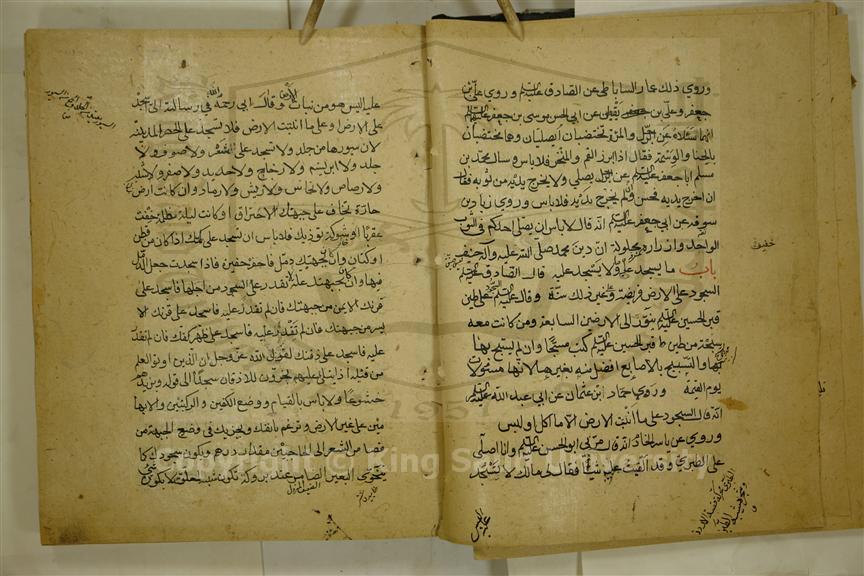 وروي ذلك عمار الساباطي عن الصادق عليه السلم وروي علي بن
جعفر وعلي بن يقطين عن ابي الحسن موسى بن جعفر عليه السلم
انهما سئلاه عن الرجل والمرءة يختضبان ايصليان وهما مختضبان
بالحنا والوسمة فقال اذا ابرز الفم والمنخر فلا باس وسال محمد بن
مسلم ابا جعفر عليه السلم عن الرجل يصلي ولا يخرج يديه من ثوبه فقال
ان اخرج يديه فحسن وان لم يخرج يديه فلا باس وروي زياد بن
سوقه عن ابي جعفر عليه السلم انه قال لا باس ان يصلي احدكم في الثوب
الواحد وازراره محلولة ان دين محمد صلى الله عليه وآله حنيف
باب ما يسجد عليه وما لا يسجد عليه قال الصادق عليه السلم
السجود على الارض فريضة وعلى غير ذلك سنة وقال عليه السلم السجود على طين
قبر الحسين عليه السلم ينور الى الارضين السابعة ومن كانت معه
سبحة من طين قبر الحسين عليه السلم كتب مسبحا وان لم يسبح بها
والتسبيح بالاصابع افضل منه بغيرها لانها مسئولات
يوم القيمة وروي حماد ابن عثمان عن ابي عبد الله عليه السلم
انه قال السجود على ما انبتت الارض الا ما اكل او لبس
وروي عن ياسر الخادم انه قال مر بي ابو الحسن عليه السلم وانا اصلي
على الطبري وقد القيت عليه شيئا فقال لي مالك لا تسجد
عليه اليس هو من نبات الارض وقال ابي رحمه الله في رسالته الي اسجد
على الارض او على ما انبتت الارض ولا تسجد على الحصر المدنية
لان سيورها من جلد ولا تسجد على الشعر ولا صوف ولا
جلد ولا ابريشم ولا زجاج ولا حديد ولا صفر ولا شبه
ولا رصاص ولا نحاس ولا ريش ولا رماد وان كانت الارض
حارة تخاف على جبهتك الاحتراق او كانت ليلة مظلمة خفت
عقربا او شوكة تؤذيك فلا باس ان تسجد على كمك اذا كان من قطن
او كتان وان كان بجبهتك دمل فاحفر حفيرة فاذا سجدت جعل الدمل
فيها وان كان بجبهتك علة لا تقدر على السجود من اجلها فاسجد على
قرنك الايمن من جبهتك فان لم تقدر عليه فاسجد على قرنك الا
يسر من جبهتك فان لم تقدر عليه فاسجد على ظهر كفك فان لم تقدر
عليه فاسجد على ذقنك لقول الله عز وجل ان الذين اوتوا العلم
من قبله اذا يتلى عليهم يخرون للاذقان سجدا الى قوله ويزيدهم
خشوعا ولا باس بالقيام ووضع الكفين والركبتين والابها
مين على غير الارض وترغم بانفك ويجزيك في وضع الجبهة من
قصاص الشعر الى الحاجبين مقدار درهم ويكون سجودك كما
يتخوى البعير الضامر عند بروكه تكون شبه المعلق لا يكون شيء